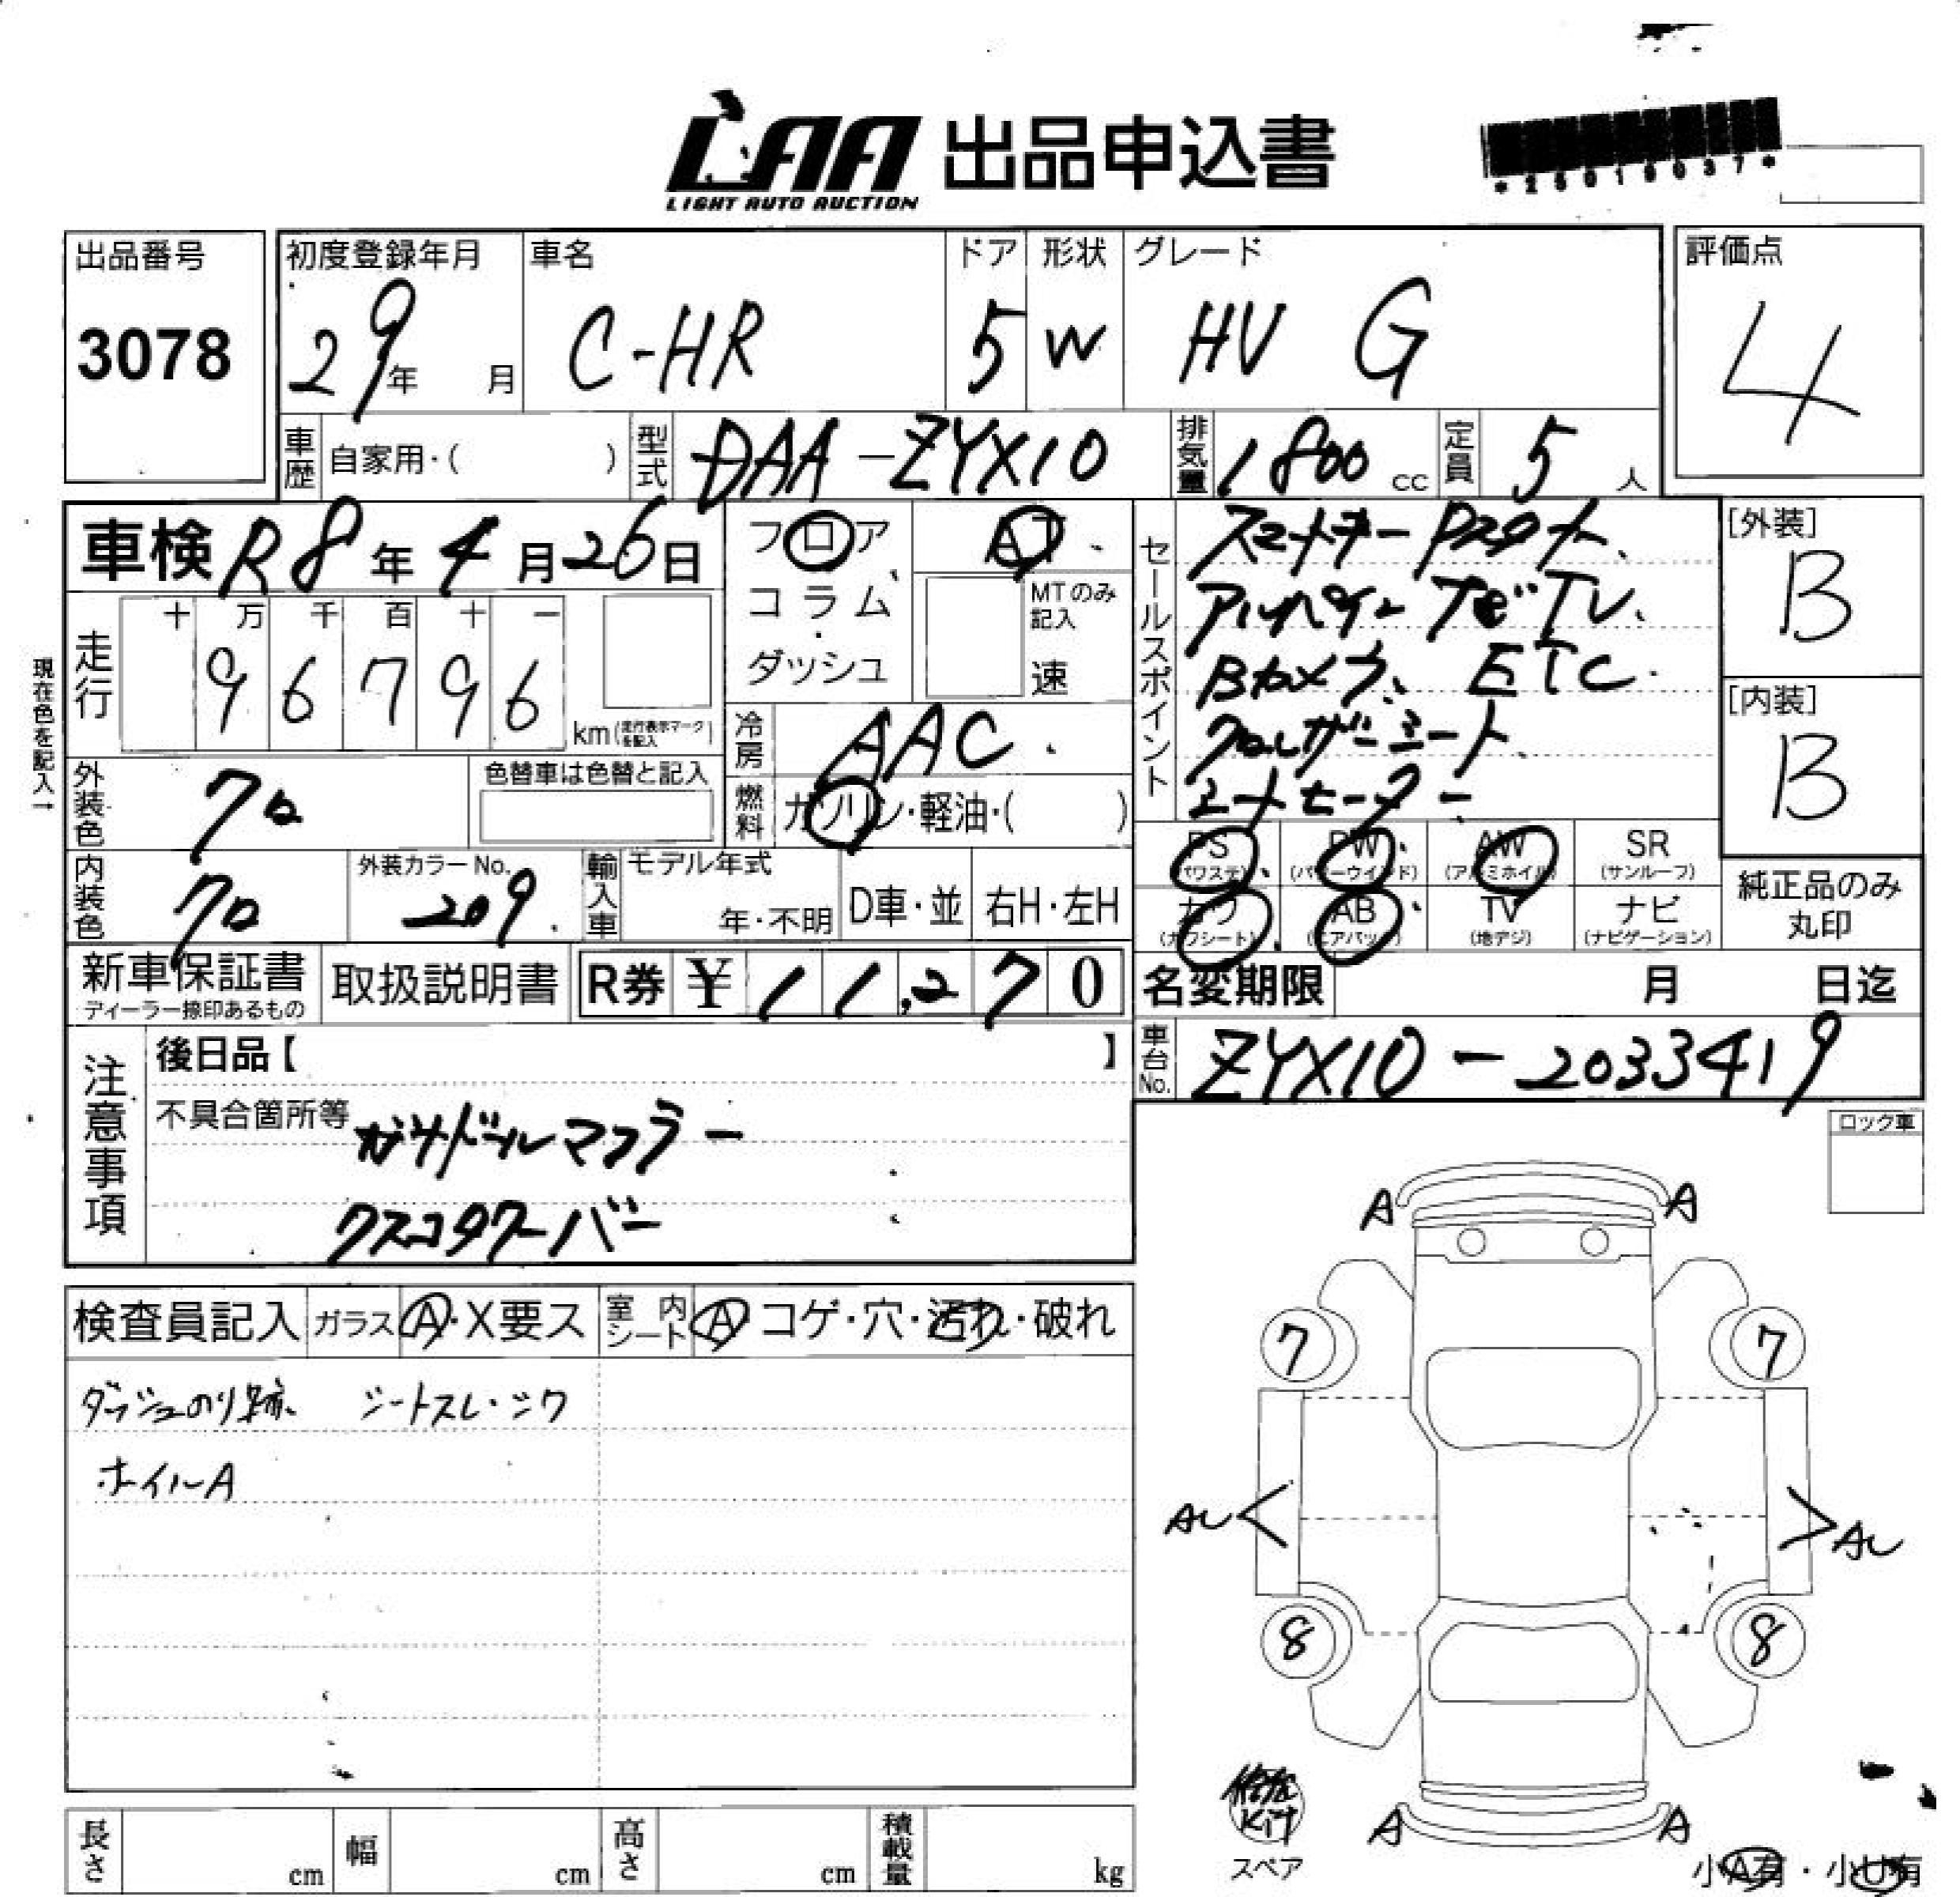 LAA 出品申込書
LIGHT AUTO AUCTION
*25019037*
出品番号
3078
初度登録年月
29年 月
車名
C-HR
ドア
5
形状
W
グレード
HV G
評価点
4
車歴 自家用・( )
型式 DAA-ZYX10
排気量 1800 cc
定員 5 人
車検 R8年4月26日
フロア
コラム
・
ダッシュ
AT
MTのみ記入
速
セールスポイント
スマートキー Pスタート、
アルパイン ナビTV、
Bカメラ、 ETC.
クロレザーシート、
シートヒーター
[外装]
B
[内装]
B
現在色を記入→
走行
十 万 千 百 十 一
9 6 7 9 6
km(走行表示マークを記入)
冷房 AAC
燃料 ガソリン・軽油・( )
外装色 クロ
色替車は色替と記入
内装色 クロ
外装カラーNo. 209
輸入車
モデル年式
年・不明
D車・並
右H・左H
PS (パワステ)
PW (パワーウインド)
AW (アルミホイル)
SR (サンルーフ)
カワ (カワシート)
AB (エアバック)
TV (地デジ)
ナビ (ナビゲーション)
純正品のみ
丸印
新車保証書
ディーラー捺印あるもの
取扱説明書
R券 ¥ 11,270
名変期限 月 日迄
車台No. ZYX10-2033419
注意事項
後日品【 】
不具合箇所等 ガナドールマフラー
クスコタワーバー
ロック車
検査員記入 ガラス A・X要ス
室内シート A コゲ・穴・汚れ・破れ
ダッシュのり跡、 シートスレ・シワ
ホイルA
A A
7 7
AU AU
8 8
A A
修理
Kit
スペア
小A有・小U有
長さ cm
幅 cm
高さ cm
積載量 kg